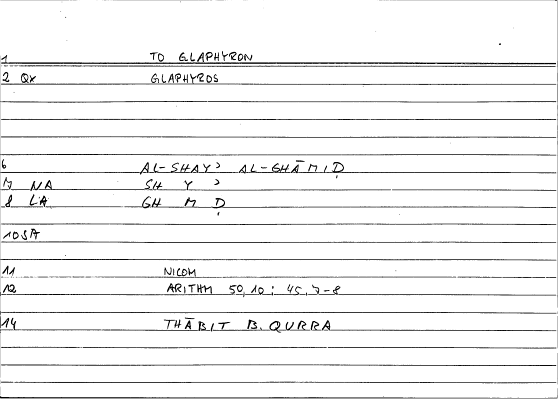 1 TO GLAPHYRON
2 Qx GLAPHYROS
6 AL-SHAYʾ AL-GHĀMIḌ
7 NA SH Y ʾ
8 LA GH M Ḍ
10 SA
11 NICOM
12 ARITHM 50,10; 45,7-8
14 THĀBIT B. QURRA